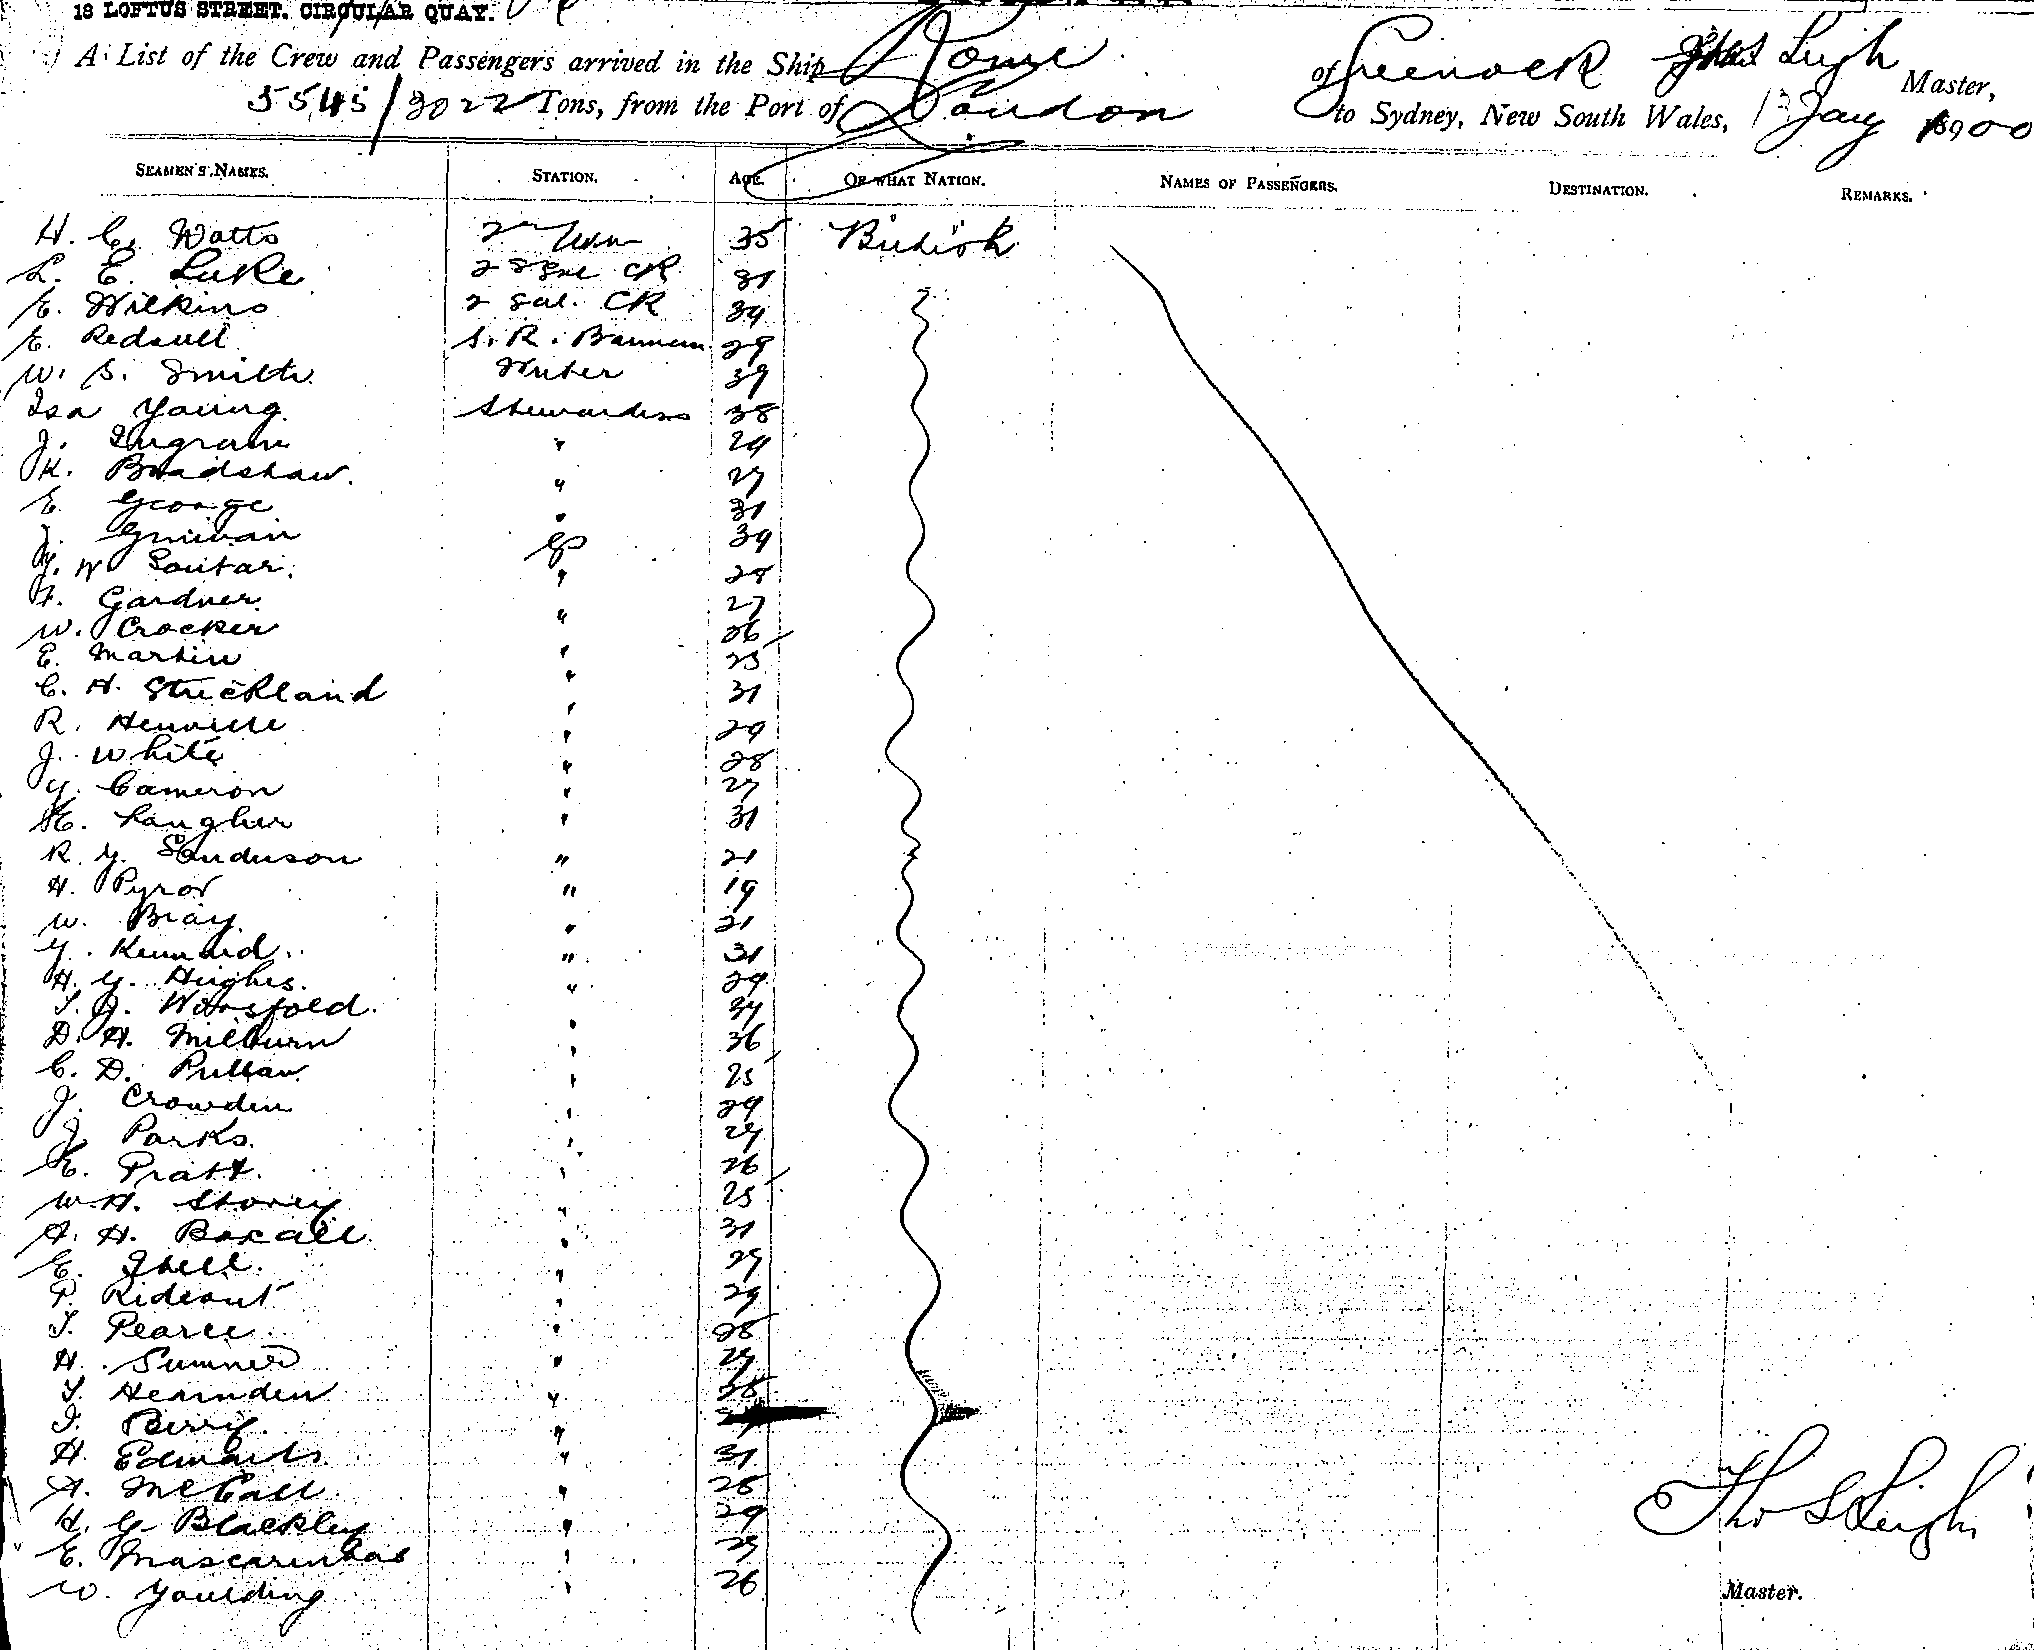 18 LOFTUS STREET. CIRCULAR QUAY.
A List of the Crew and Passengers arrived in the Ship Rome of Greenock Leigh Master,
5545/3022 Tons, from the Port of London to Sydney, New South Wales, 13 Jany 1900
SEAMEN'S NAMES. STATION. AGE. OF WHAT NATION. NAMES OF PASSENGERS. DESTINATION. REMARKS.
H. C. Watts 2nd 35 British
L. E. Luke 2 CR 31
E. Wilkins 2 Sal. CR 34
E. Redsull S. R. 29
W. S. Smith Writer 39
Isa Young Stewardess 38
J. Ingram " 29
K. Bradshaw "
E. George " 31
J. 39
W Soutar " 28
Gardner " 27
W. Crocker " 26
E. Martin " 25
C. H. Strickland " 31
R. " 29
J. White " 28
G. Cameron " 27
Langher " 31
R. G. Sanderson " 21
H. Pyror " 19
W. Bray " 21
G. Kennard " 31
H. G. Hughes "
T. J. Worsfold "
D. H. Milburn " 36
C. D. Pullan " 25
J. Crowden " 29
J. Parks "
E. Pratt " 26
W. H. Storey " 25
A. H. Boxall " 31
E. "
P. Rideout " 29
T. Pearce " 28
H. Sumner "
T. Hearnden "
Berry "
H. Edwards " 31
A. McCall " 28
H. G. Blackley " 29
E. Mascarenhas "
W. Youlding " 26
Tho S Leigh
Master.